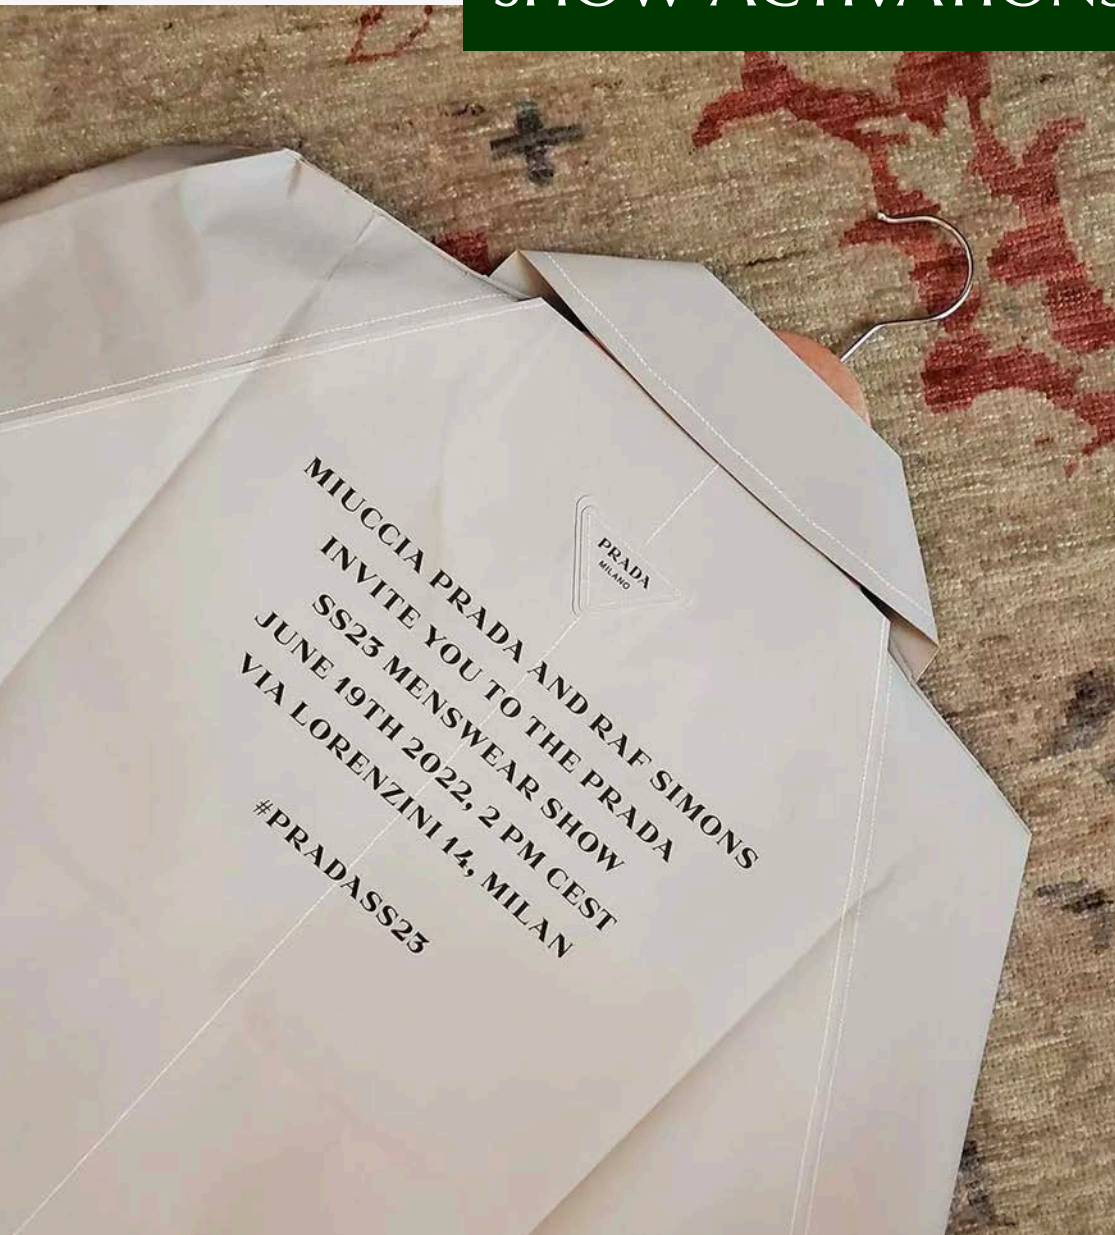 SHOW ACTIVATIONS
PRADA
MILANO
MIUCCIA PRADA AND RAF SIMONS
INVITE YOU TO THE PRADA
SS23 MENSWEAR SHOW
JUNE 19TH 2022, 2 PM CEST
VIA LORENZINI 14, MILAN
#PRADASS23